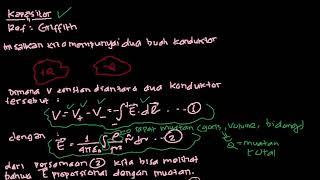 Kapasitor ✓
Ref : Griffith
Misalkan kita mempunyai dua buah konduktor
+Q
-Q
Dimana V konstan diantara dua konduktor
tersebut :
V = V₊ - V₋ = -∫ E⃗ · dl⃗ ... ①
rapat muatan (garis, volume, bidang)
dengan E⃗ = 1/4πε₀ ∫ ρ/r² r̂ dτ ... ②
Q = muatan
total
dari persamaan ② kita bisa melihat
bahwa E⃗ proporsional dengan muatan.